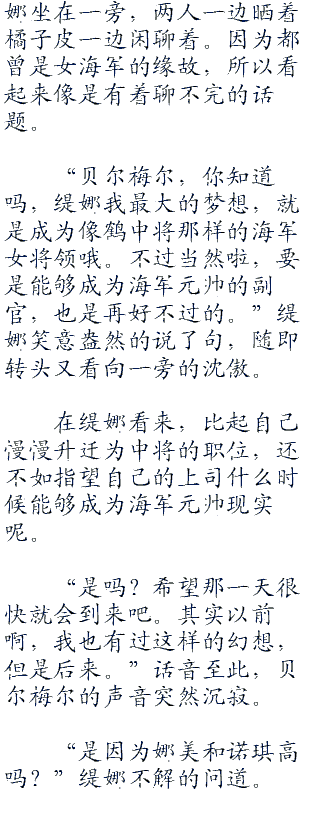 娜坐在一旁，两人一边晒着
橘子皮一边闲聊着。因为都
曾是女海军的缘故，所以看
起来像是有着聊不完的话
题。
“贝尔梅尔，你知道
吗，缇娜我最大的梦想，就
是成为像鹤中将那样的海军
女将领哦。不过当然啦，要
是能够成为海军元帅的副
官，也是再好不过的。”缇
娜笑意盎然的说了句，随即
转头又看向一旁的沈傲。
在缇娜看来，比起自己
慢慢升迁为中将的职位，还
不如指望自己的上司什么时
候能够成为海军元帅现实
呢。
“是吗？希望那一天很
快就会到来吧。其实以前
啊，我也有过这样的幻想，
但是后来。”话音至此，贝
尔梅尔的声音突然沉寂。
“是因为娜美和诺琪高
吗？”缇娜不解的问道。